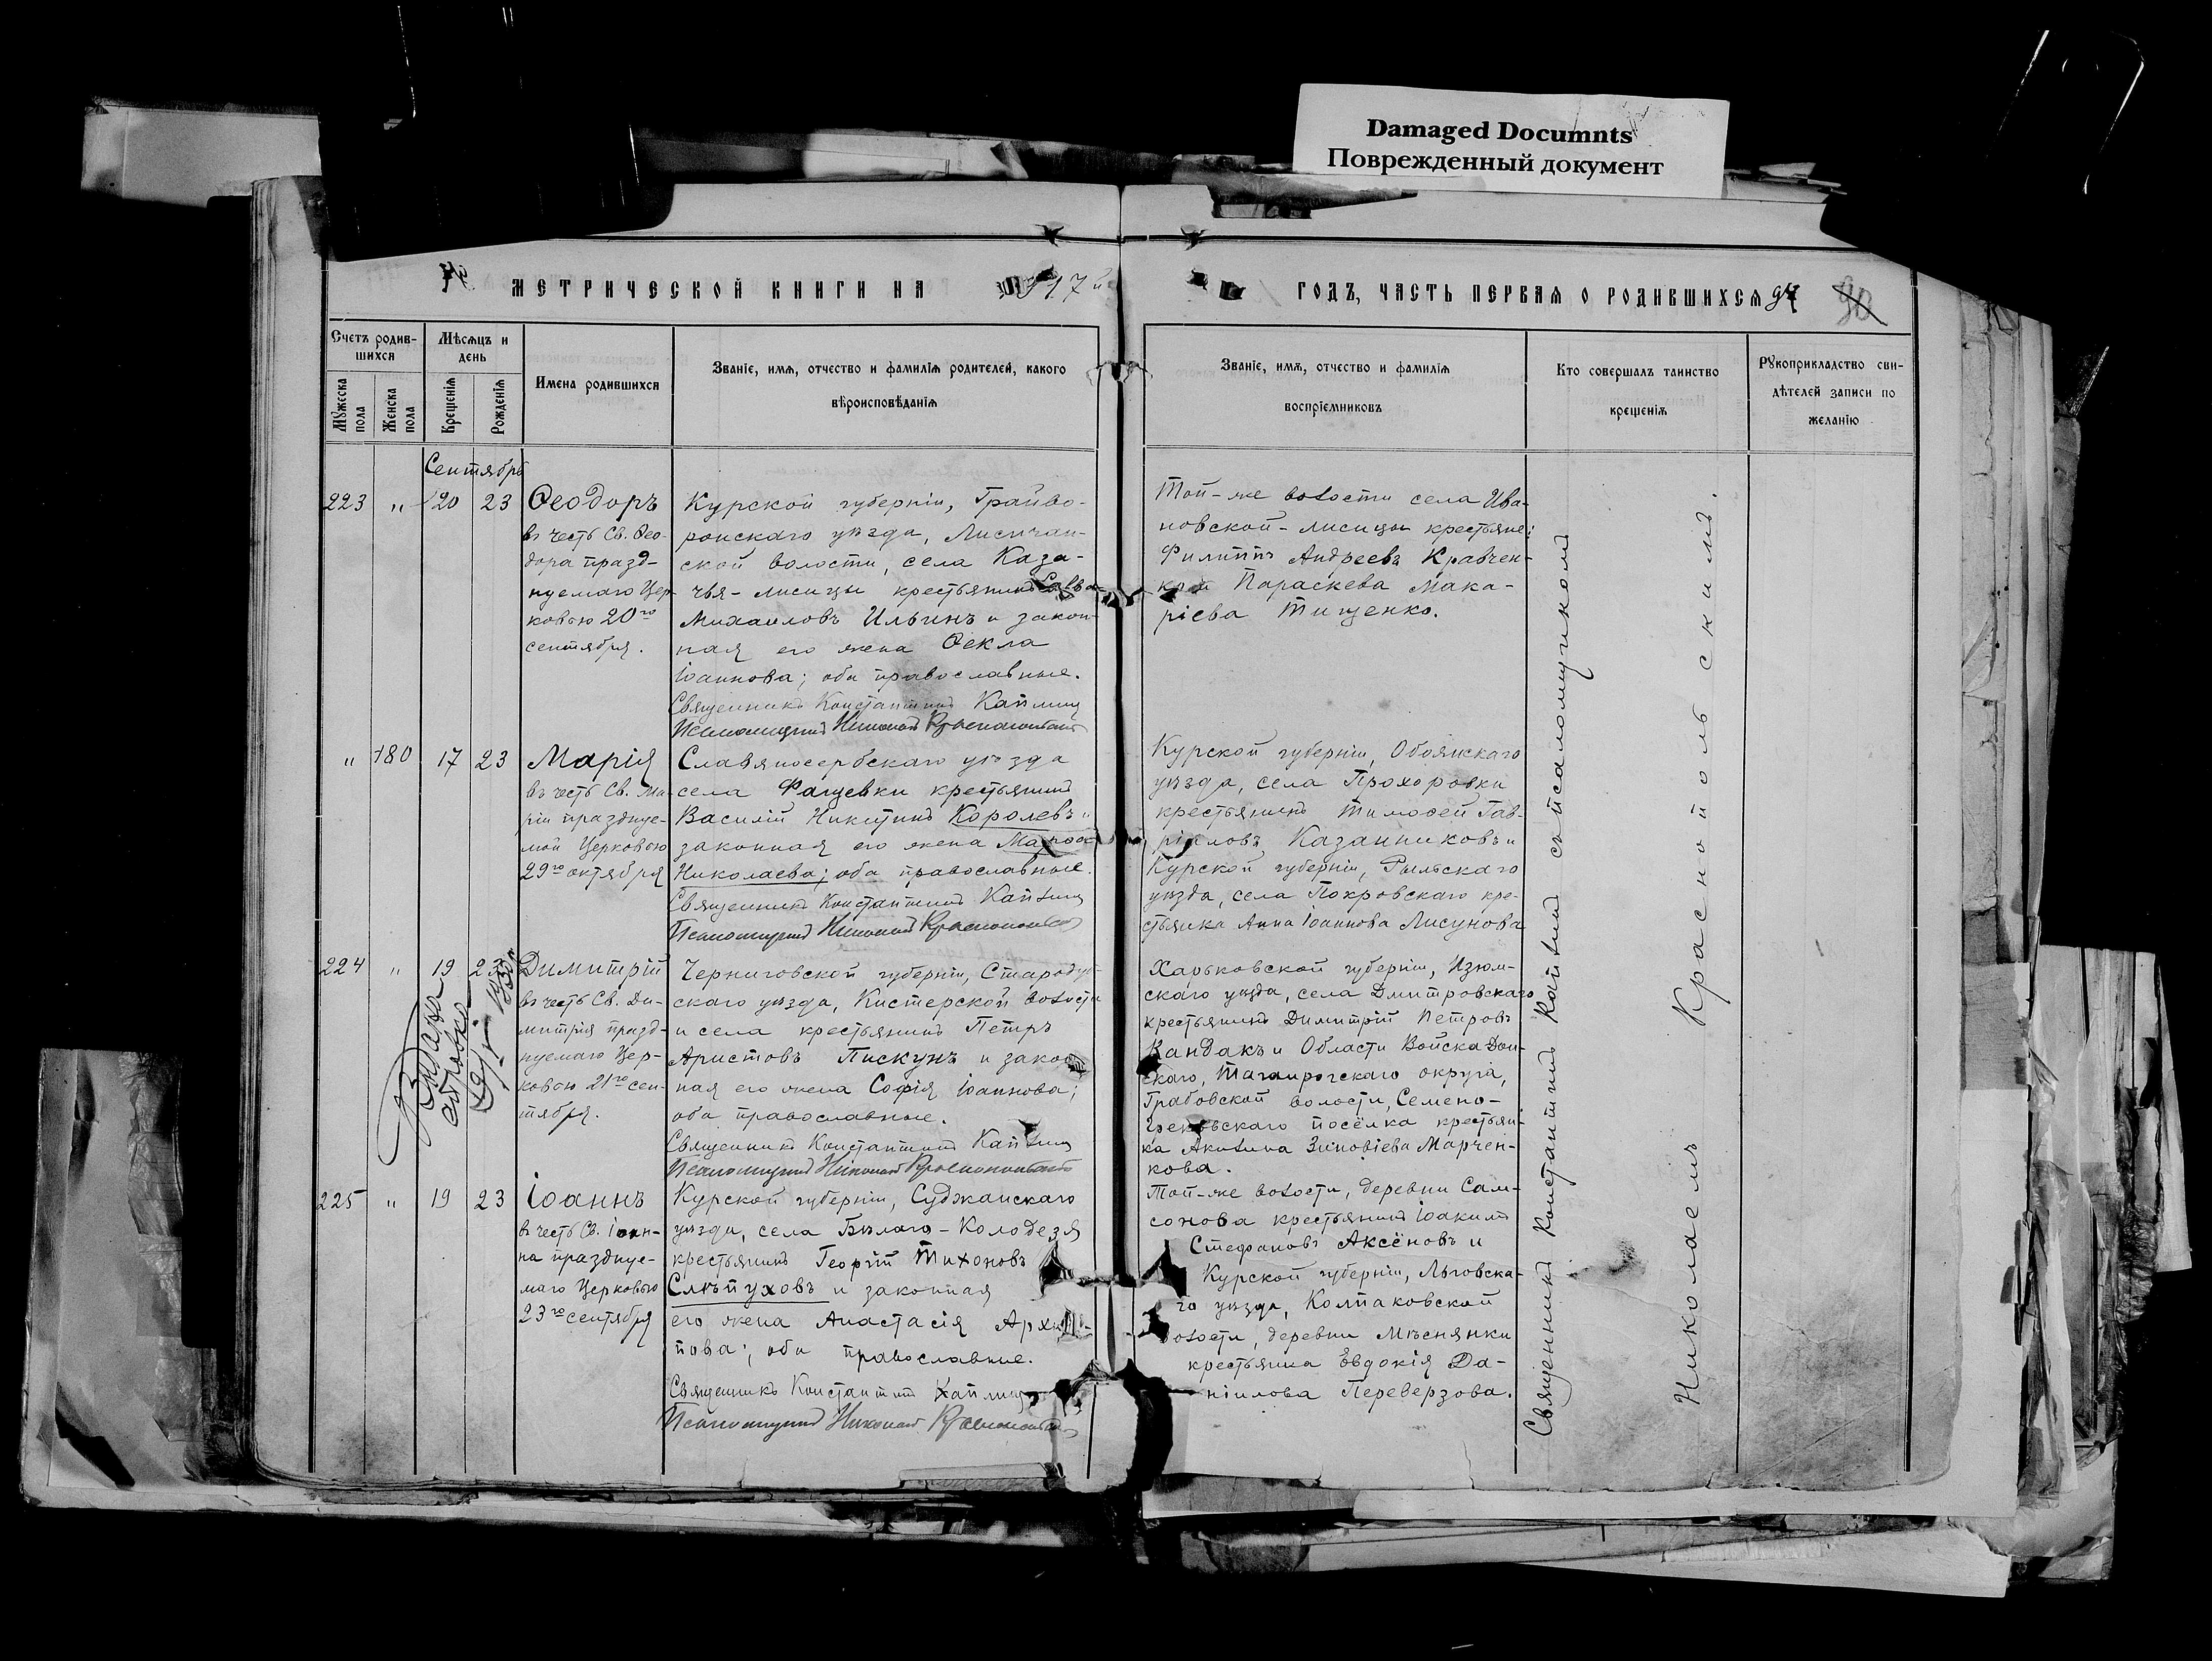 Damaged Documnts
Поврежденный документ
МЕТРИЧЕСКОЙ КНИГИ НА 917й
ГОДЪ, ЧАСТЬ ПЕРВАЯ О РОДИВШИХСЯ 94 90
Счетъ родив-
шихся
Мужеска пола
Женска пола
Мѣсяцъ и
день
Крещенія
Рожденія
Имена родившихся
Званіе, имя, отчество и фамилія родителей, какого
вѣроисповѣданія
Званіе, имя, отчество и фамилія
воспріемниковъ
Кто совершалъ таинство
крещенія
Рукоприкладство сви-
дѣтелей записи по
желанію
Сентябрь
223 " 20 23 Ѳеодоръ
въ честь Св. Ѳео-
дора празд-
нуемаго Цер-
ковью 20го
сентября.
Курской губерніи, Грайво-
ронскаго уѣзда, Лисичан-
ской волости, села Каза-
чья-лисицы крестьянинъ
Михаиловъ Ильинъ и закон-
ная его жена Ѳекла
Іоаннова; оба православные.
Священникъ Константинъ Каплинъ
Псаломщикъ Николай Краснопольскій
Той-же волости села Ива-
новской-лисицы крестьяне:
Филиппъ Андреевъ Кравчен-
Параскева Мака-
ріева Тищенко.
" 180 17 23 Марія
въ честь Св. Ма-
ріи празднуе-
мой Церковью
29го октября
Славяносербскаго уѣзда
села Фащевки крестьянинъ
Василій Никитинъ Королевъ и
законная его жена
Николаева; оба православные.
Священникъ Константинъ Каплинъ
Псаломщикъ Николай Краснопольскій
Курской губерніи, Обоянскаго
уѣзда, села Прохоровки
крестьянинъ Тимоѳей Гав-
ріиловъ Казанниковъ и
Курской губерніи, Рыльскаго
уѣзда, села Покровскаго кре-
стьянка Анна Іоаннова Лисунова
224 " 19 23 Димитрій
въ честь Св. Ди-
митрія празд-
нуемаго Цер-
ковью 21го сен-
тября.
Черниговской губерніи, Стародуб-
скаго уѣзда, Кистерской волости
и села крестьянинъ Петръ
Аристовъ Пискунъ и закон-
ная его жена Софія Іоаннова;
оба православные.
Священникъ Константинъ Каплинъ
Псаломщикъ Николай Краснопольскій
Харьковской губерніи, Изюм-
скаго уѣзда, села Дмитровскаго
крестьянинъ Димитрій Петровъ
Кандакъ и Области Войска Дон-
скаго, Таганрогскаго округа,
Грабовской волости, Семено-
посёлка крестьян-
ка Акилина Зиновіева Марчен-
кова.
225 " 19 23 Іоаннъ
въ честь Св. Іоан-
на празднуе-
маго Церковью
23го сентября
Курской губерніи, Суджанскаго
уѣзда, села Бѣлаго-Колодезя
крестьянинъ Георгій Тихоновъ
Слѣпуховъ и законная
его жена Анастасія Архип-
пова; оба православные.
Священникъ Константинъ Каплинъ
Псаломщикъ Николай Краснопольскій
Той-же волости, деревни Сам-
сонова крестьянинъ Іоакимъ
Стефановъ Аксёновъ и
Курской губерніи, Льговска-
го уѣзда, Колпаковской
волости, деревни Мѣснянки
крестьянка Евдокія Да-
ніилова Переверзова.
Священникъ Константинъ Каплинъ съ псаломщикомъ
Николаемъ Краснопольскимъ.